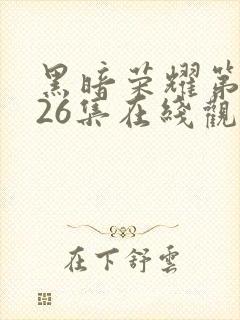 黑暗荣耀第
26集在线觀
在下舒雲